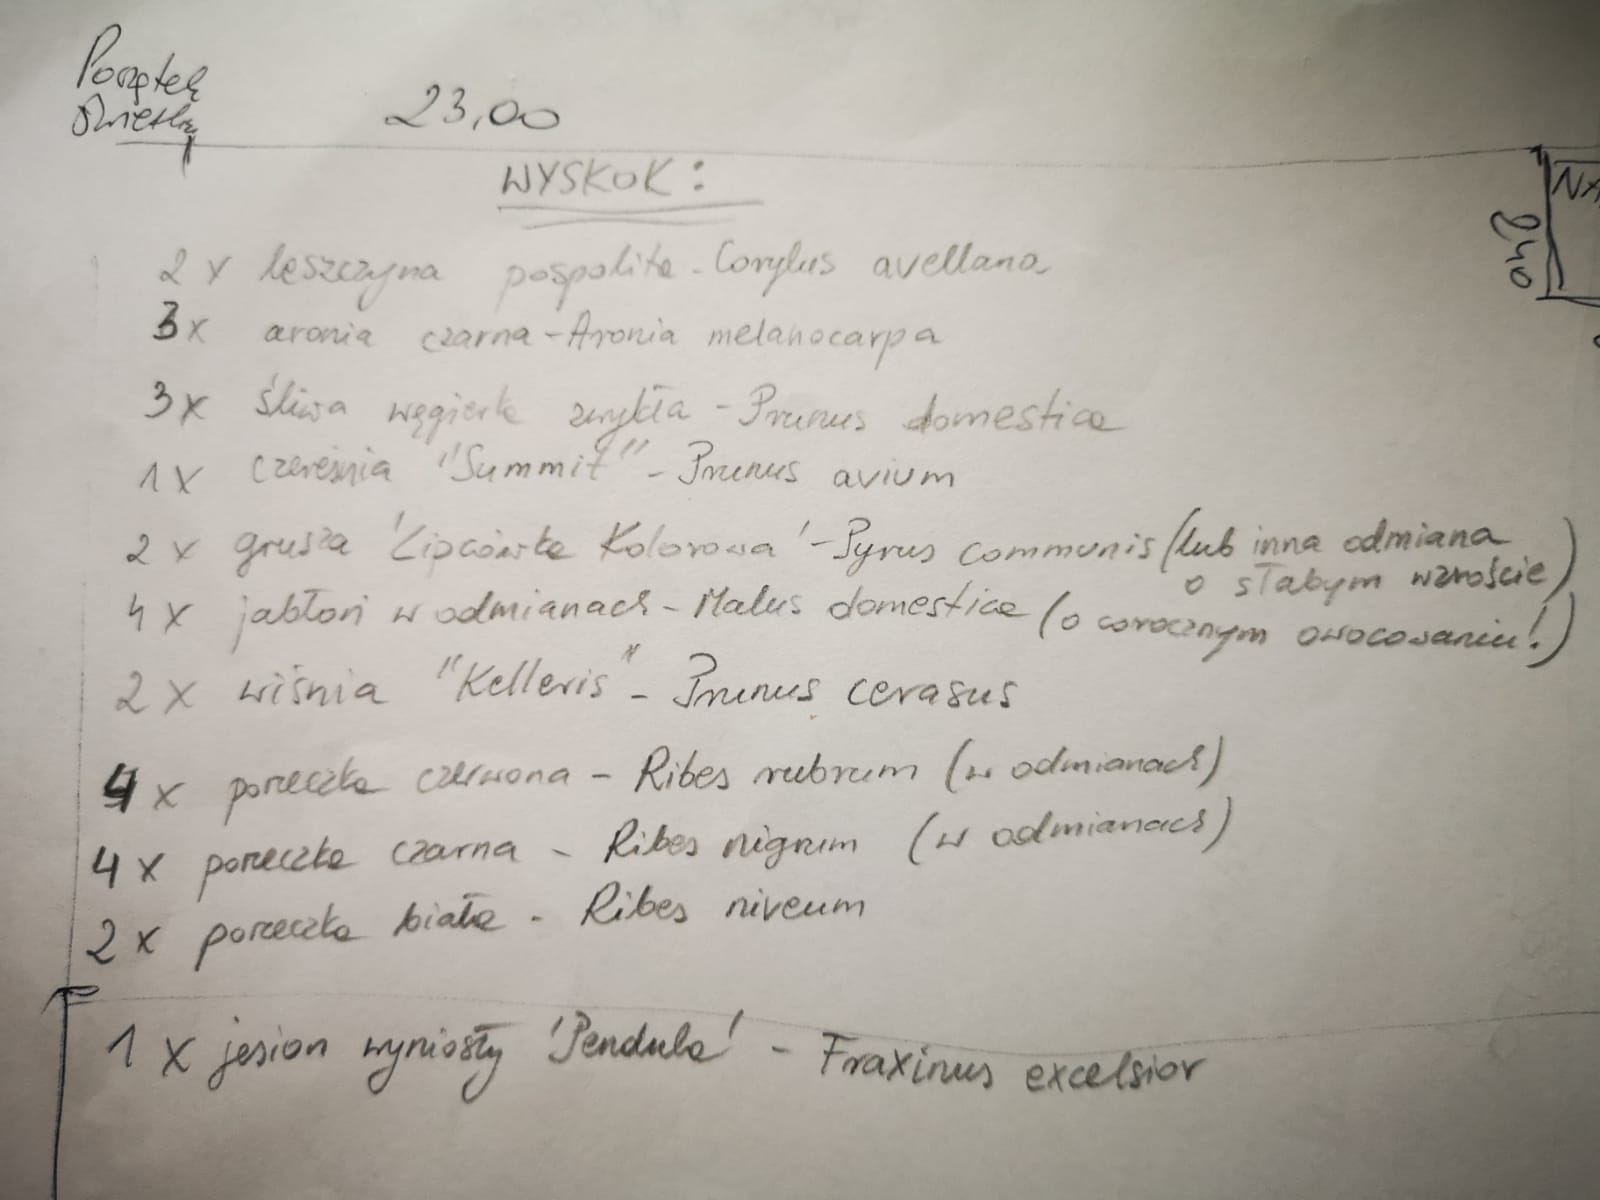 Początek
23,00
WYSKOK:
2 x leszczyna pospolita - Corylus avellana
3x aronia czarna - Aronia melanocarpa
3x śliwa węgierka zwykła - Prunus domestica
1x czereśnia "Summit" - Prunus avium
2 x grusza 'Lipcówka Kolorowa' - Pyrus communis (lub inna odmiana
o słabym wzroście)
4 x jabłoń w odmianach - Malus domestica (o corocznym owocowaniu!)
2 x wiśnia "Kelleris" - Prunus cerasus
4 x porzeczka czerwona - Ribes rubrum (w odmianach)
4 x porzeczka czarna - Ribes nigrum (w odmianach)
2 x porzeczka biała - Ribes niveum
1 x jesion wyniosły 'Pendula' - Fraxinus excelsior